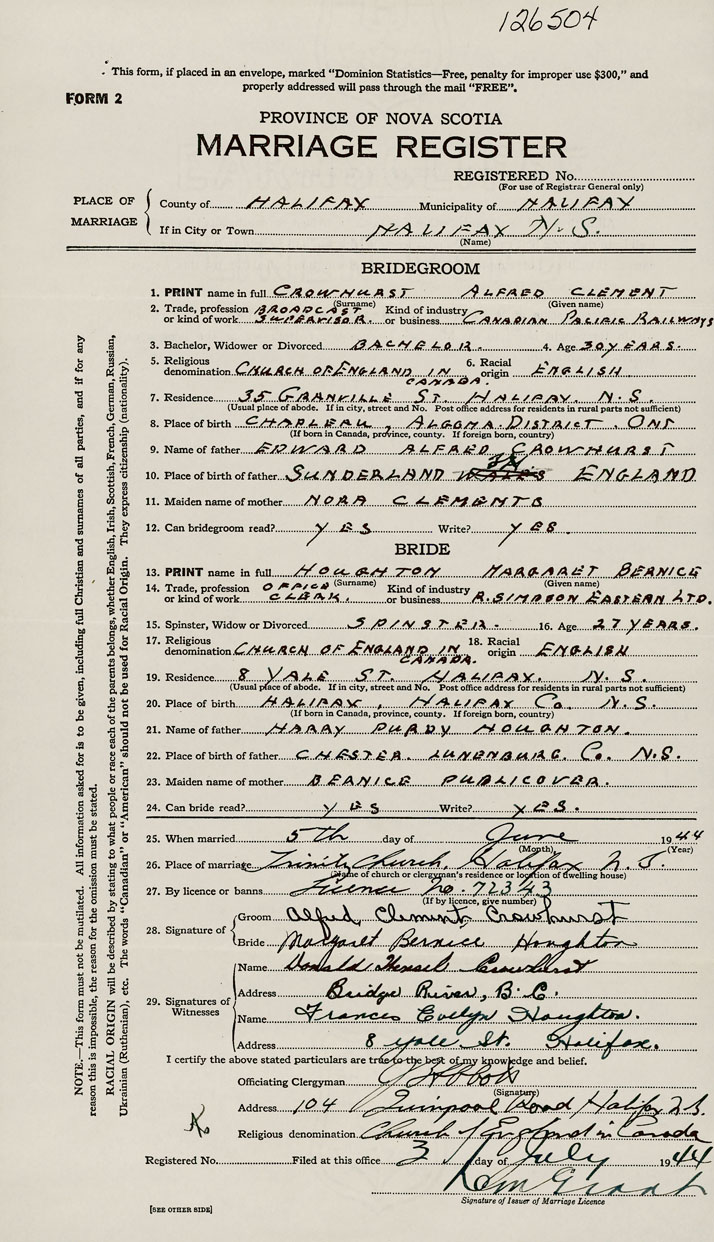 126504
This form, if placed in an envelope, marked "Dominion Statistics—Free, penalty for improper use $300," and
properly addressed will pass through the mail "FREE".
FORM 2
PROVINCE OF NOVA SCOTIA
MARRIAGE REGISTER
REGISTERED No.
(For use of Registrar General only)
PLACE OF MARRIAGE
County of HALIFAX Municipality of HALIFAX
If in City or Town HALIFAX N.S.
(Name)
BRIDEGROOM
1. PRINT name in full CROWHURST ALFRED CLEMENT
(Surname) (Given name)
2. Trade, profession or kind of work BROADCAST SUPERVISOR. Kind of industry or business CANADIAN PACIFIC RAILWAYS
3. Bachelor, Widower or Divorced BACHELOR. 4. Age 30 YEARS.
5. Religious denomination CHURCH OF ENGLAND IN CANADA. 6. Racial origin ENGLISH
7. Residence 35 GRANVILLE ST. HALIFAX. N.S.
(Usual place of abode. If in city, street and No. Post office address for residents in rural parts not sufficient)
8. Place of birth CHAPLEAU, ALGOMA. DISTRICT. ONT
(If born in Canada, province, county. If foreign born, country)
9. Name of father EDWARD ALFRED CROWHURST
10. Place of birth of father SUNDERLAND ENGLAND
11. Maiden name of mother NORA CLEMENTS
12. Can bridegroom read? YES Write? YES.
BRIDE
13. PRINT name in full HOUGHTON MARGARET BERNICE
(Surname) (Given name)
14. Trade, profession or kind of work OFFICE CLERK. Kind of industry or business R. SIMPSON EASTERN LTD.
15. Spinster, Widow or Divorced SPINSTER. 16. Age 27 YEARS.
17. Religious denomination CHURCH OF ENGLAND IN CANADA. 18. Racial origin ENGLISH
19. Residence 8 YALE ST. HALIFAX. N.S.
(Usual place of abode. If in city, street and No. Post office address for residents in rural parts not sufficient)
20. Place of birth HALIFAX, HALIFAX Co. N.S.
(If born in Canada, province, county. If foreign born, country)
21. Name of father HARRY PURDY HOUGHTON.
22. Place of birth of father CHESTER. LUNENBURG. Co. N.S.
23. Maiden name of mother BERNICE PUBLICOVER.
24. Can bride read? YES Write? YES.
25. When married 5th day of June 1944
(Month) (Year)
26. Place of marriage Trinity Church, Halifax N.S.
(Name of church or clergyman's residence or location of dwelling house)
27. By licence or banns Licence No. 72343
(If by licence, give number)
28. Signature of
Groom Alfred Clement Crowhurst
Bride Margaret Bernice Houghton
29. Signatures of Witnesses
Name Donald Crowhurst
Address Bridge River, B.C.
Name Frances Evelyn Houghton.
Address 8 Yale St. Halifax.
I certify the above stated particulars are true to the best of my knowledge and belief.
Officiating Clergyman
(Signature)
Address 104 Quinpool Road Halifax N.S.
Religious denomination Church of England in Canada
Registered No. Filed at this office 3 day of July 1944
Signature of Issuer of Marriage Licence
[SEE OTHER SIDE]
NOTE.—This form must not be mutilated. All information asked for is to be given, including full Christian and surnames of all parties, and if for any
reason this is impossible, the reason for the omission must be stated.
RACIAL ORIGIN will be described by stating to what people or race each of the parents belongs, whether English, Irish, Scottish, French, German, Russian,
Ukrainian (Ruthenian), etc. The words "Canadian" or "American" should not be used for Racial Origin. They express citizenship (nationality).